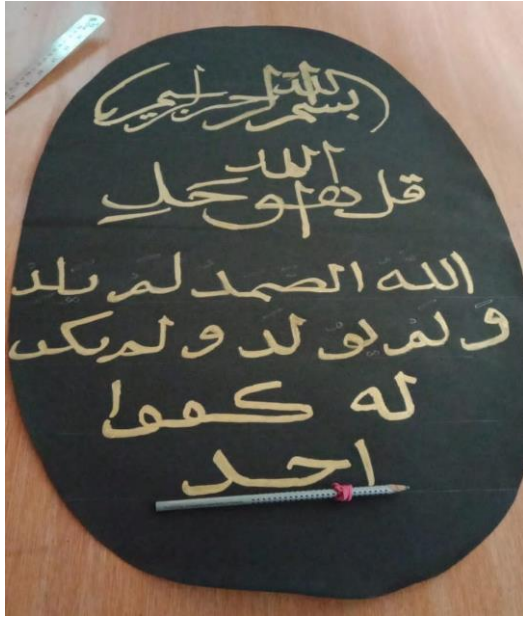 بسم الله الرحمن الرحيم
قل هو الله احد
الله الصمد لم يلد
و لم يو لد و لم يكن
له كفوا
احد